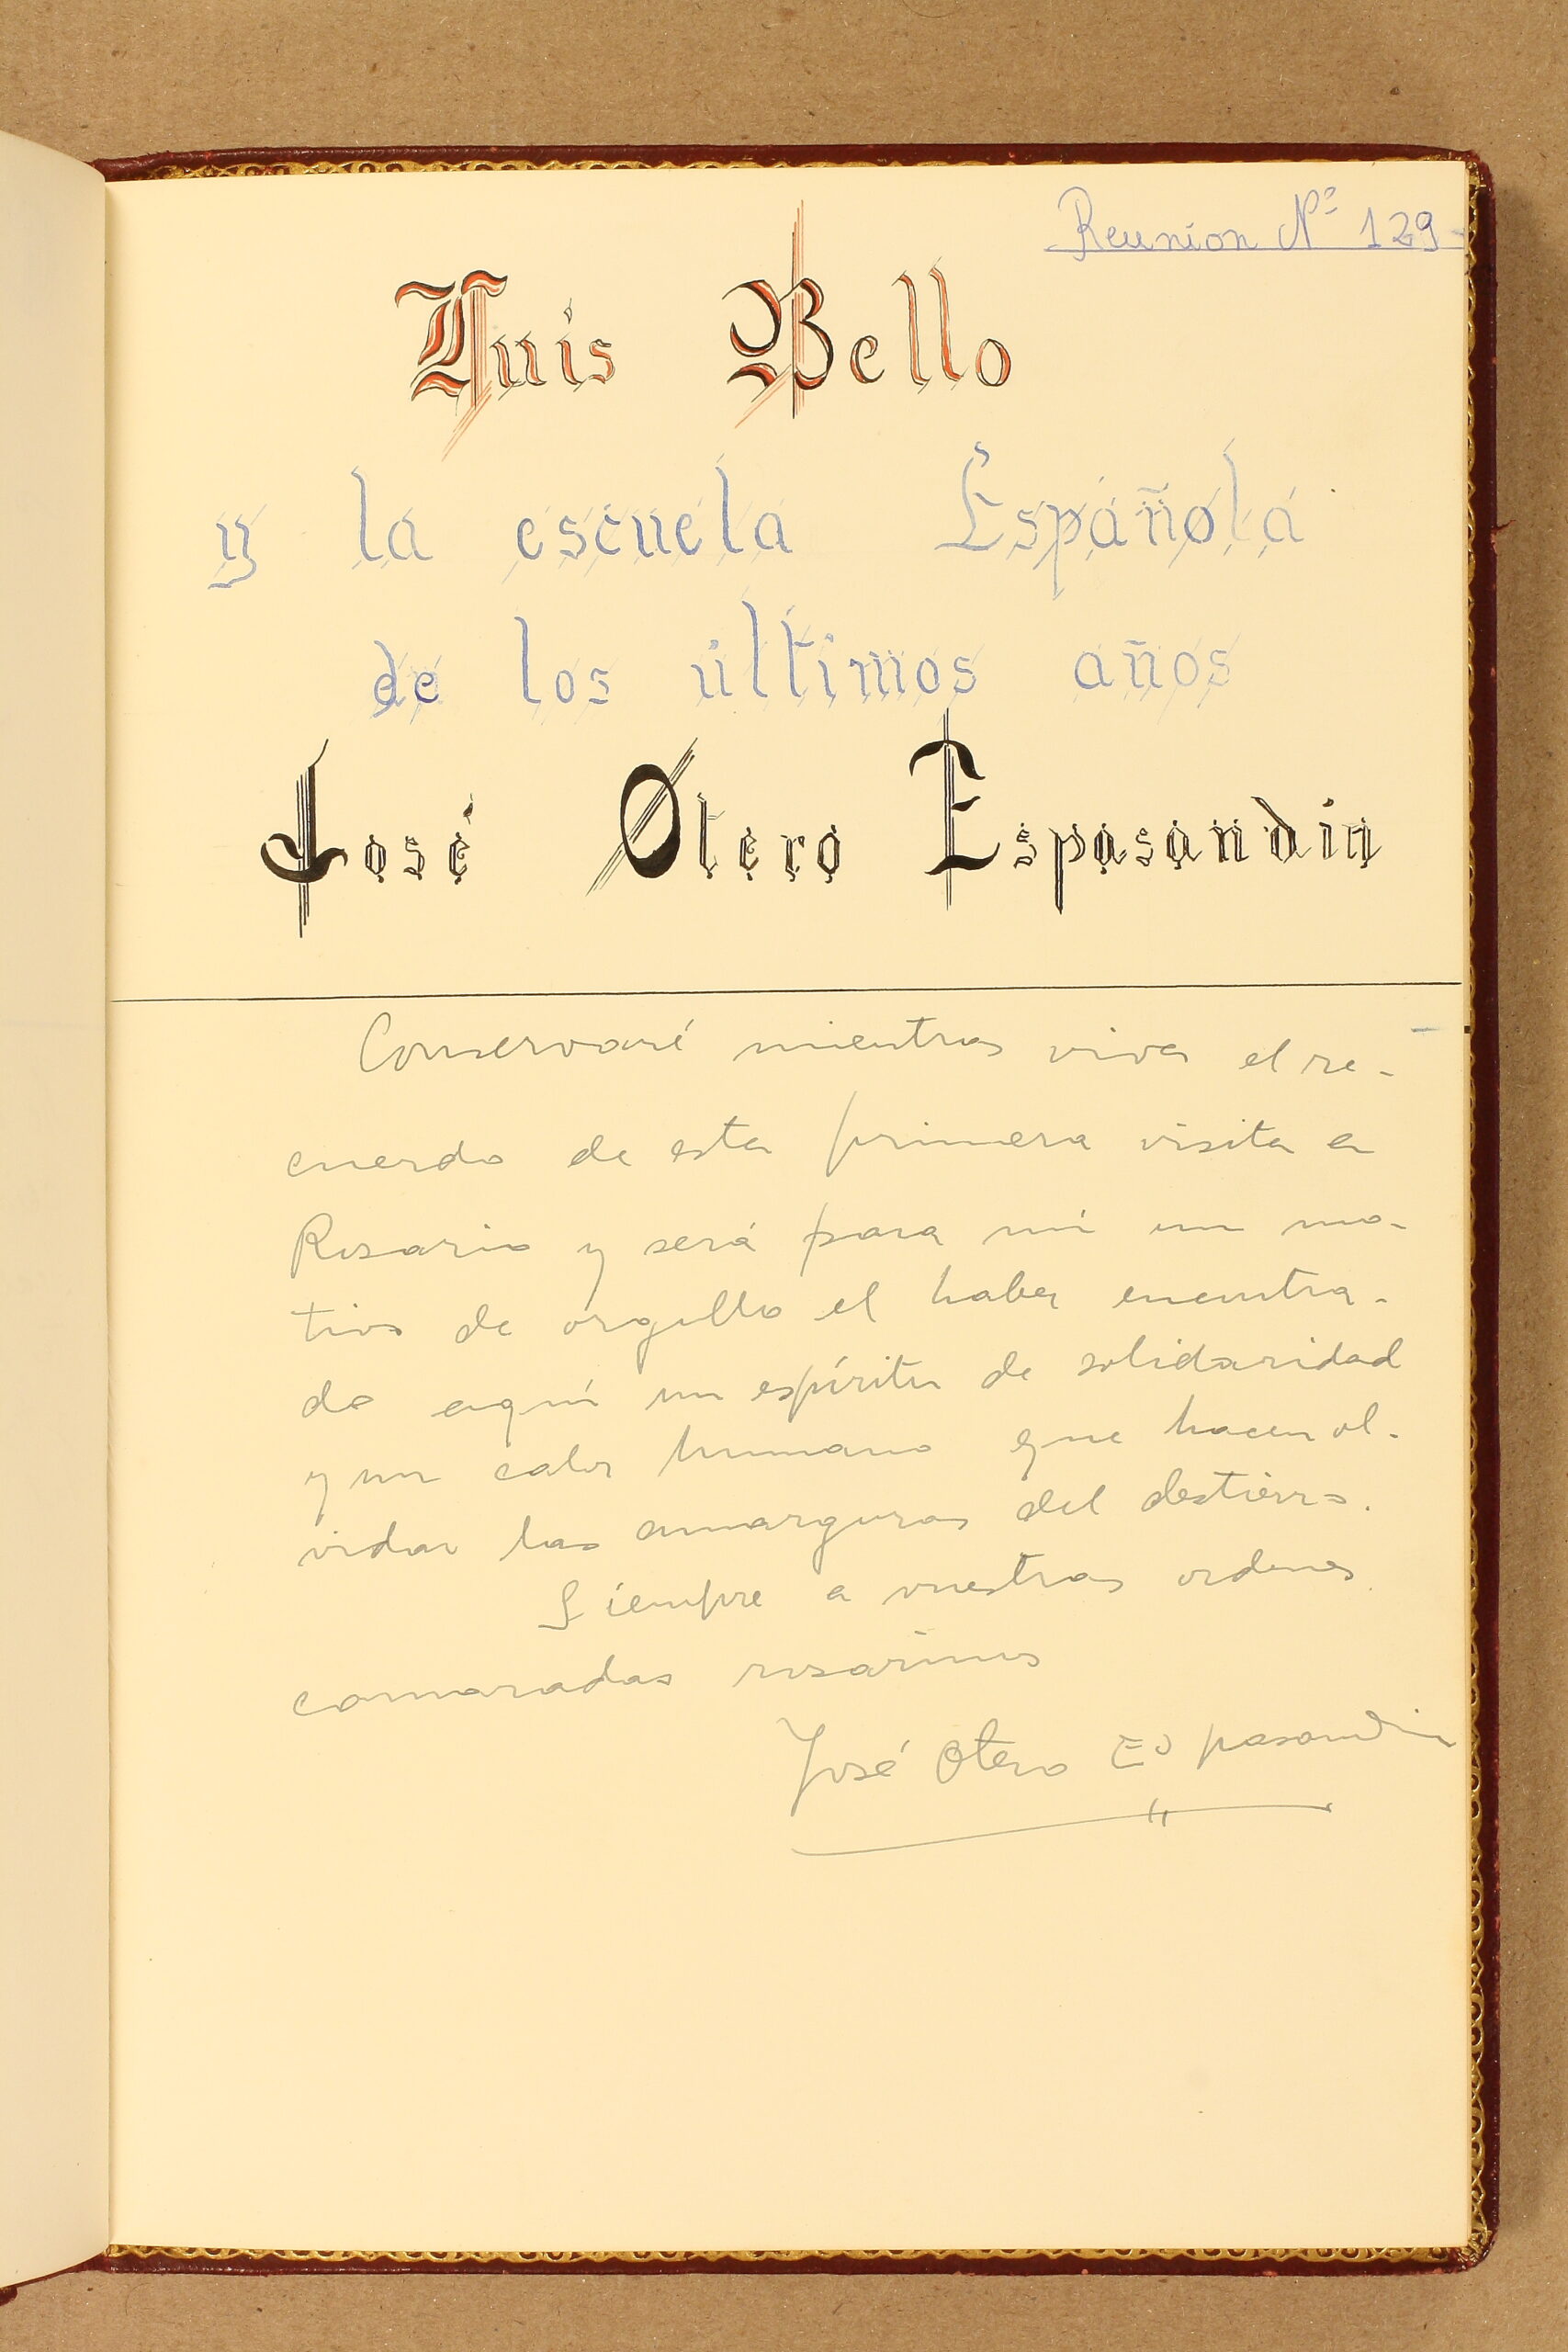 Reunion Nº 129-
Luis Bello
y la escuela Española
de los últimos años
José Otero Espasandin
Conservaré mientras viva el re-
cuerdo de esta primera visita a
Rosario y será para mí un mo-
tivo de orgullo el haber encontra-
do aquí un espíritu de solidaridad
y un calor humano que hacen ol-
vidar las amarguras del destierro.
Siempre a vuestras ordenes
camaradas rosarinos
José Otero Espasandin